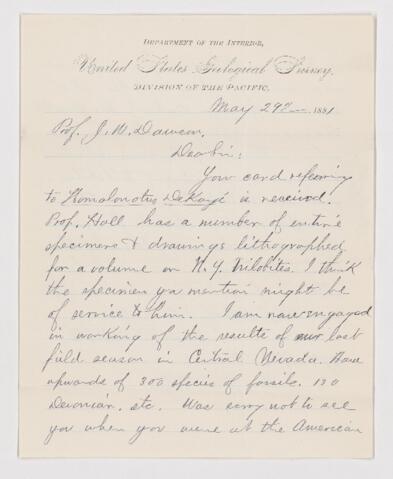 DEPARTMENT OF THE INTERIOR,
United States Geological Survey,
DIVISION OF THE PACIFIC.
May 29th 1881
Prof. J. W. Dawson.
Dear Sir:
Your card referring
to Homalonotus DeKayi is received.
Prof. Hall has a number of entire
specimens & drawings lithographed
for a volume on N.Y. Trilobites. I think
the specimen you mention might be
of service to him. I am now engaged
in working of the results of our last
field season in Central Nevada. Have
upwards of 300 species of fossils. 130
Devonian. etc. Was sorry not to see
you when you were at the American